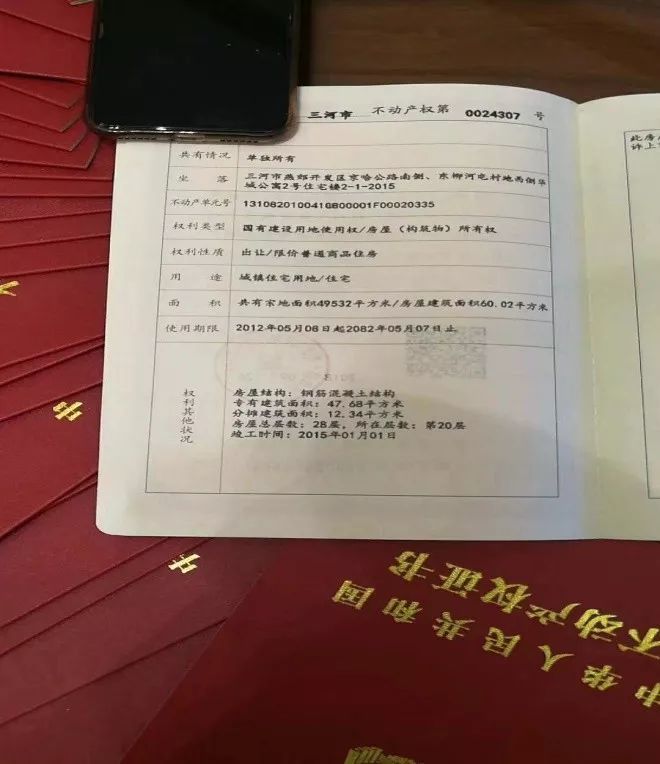 三河市 不动产权第 0024307 号
共有情况 单独所有
坐落 三河市燕郊开发区京哈公路南侧、东柳河屯村地西侧华
城公寓2号住宅楼2-1-2015
不动产单元号 131082010041GB00001F00020335
权利类型 国有建设用地使用权/房屋（构筑物）所有权
权利性质 出让/限价普通商品住房
用途 城镇住宅用地/住宅
面积 共有宗地面积49532平方米/房屋建筑面积60.02平方米
使用期限 2012年05月08日起2082年05月07日止
权利其他状况
房屋结构：钢筋混凝土结构
专有建筑面积：47.68平方米
分摊建筑面积：12.34平方米
房屋总层数：28层，所在层数：第20层
竣工时间：2015年01月01日
此房
诉上
书
书
中华人民共和国
不动产权证书